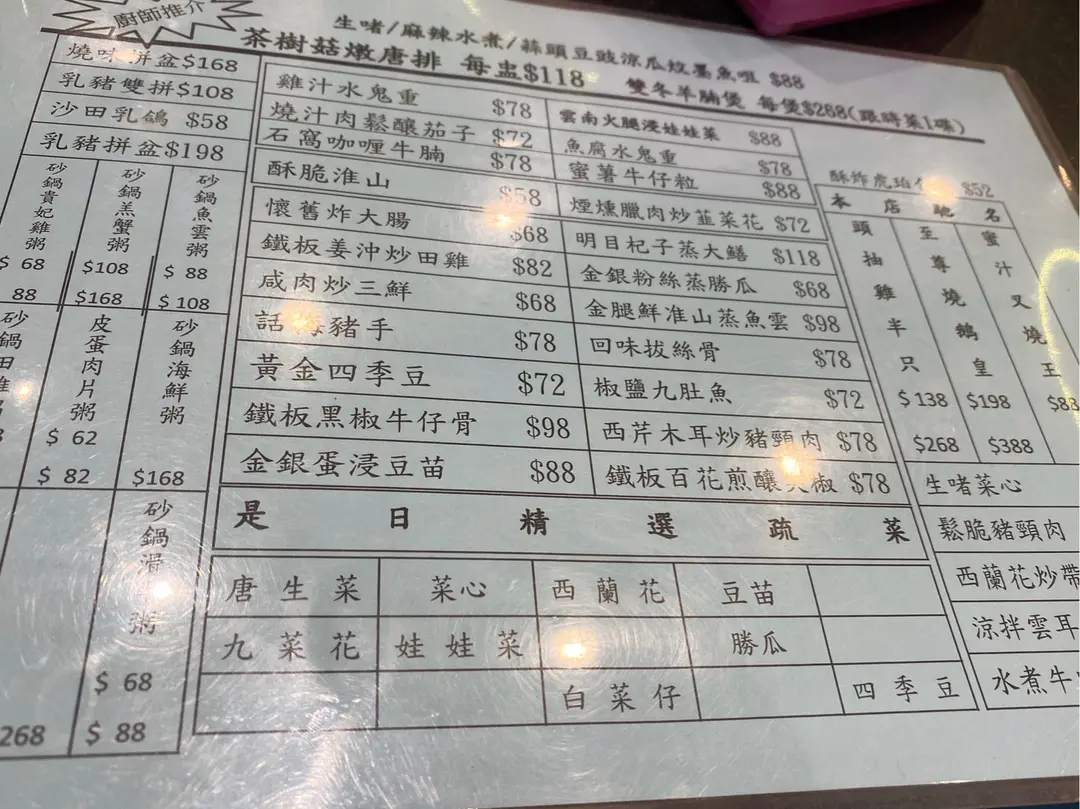 廚師推介
生啫/麻辣水煮/蒜頭豆豉涼瓜炆墨魚咀 $88
茶樹菇燉唐排 每盅$118
雙冬羊腩煲 每煲$268(跟時菜1碟)
燒味拼盆$168
乳豬雙拼$108
沙田乳鴿 $58
乳豬拼盆$198
砂鍋貴妃雞粥
$ 68
88
砂鍋羔蟹粥
$108
$168
砂鍋魚雲粥
$ 88
$ 108
砂鍋田
皮蛋肉片粥
$ 62
$ 82
砂鍋海鮮粥
$168
268
砂鍋滑
粥
$ 68
$ 88
雞汁水鬼重 $78
燒汁肉鬆釀茄子 $72
石窩咖喱牛腩 $78
酥脆淮山 $58
懷舊炸大腸 $68
鐵板姜沖炒田雞 $82
咸肉炒三鮮 $68
話梅豬手 $78
黃金四季豆 $72
鐵板黑椒牛仔骨 $98
金銀蛋浸豆苗 $88
雲南火腿浸娃娃菜 $88
魚腐水鬼重 $78
蜜薯牛仔粒 $88
煙燻臘肉炒韮菜花 $72
明目杞子蒸大鱔 $118
金銀粉絲蒸勝瓜 $68
金腿鮮淮山蒸魚雲 $98
回味拔絲骨 $78
椒鹽九肚魚 $72
西芹木耳炒豬頸肉 $78
鐵板百花煎釀尖椒 $78
酥炸虎珀 $52
本店馳名
頭抽雞半只
$ 138
$268
至尊燒鵝皇
$198
$388
蜜汁叉燒王
$88
生啫菜心
鬆脆豬頸肉
西蘭花炒帶
涼拌雲耳
水煮牛
是日精選疏菜
唐生菜 菜心 西蘭花 豆苗
九菜花 娃娃菜 勝瓜
白菜仔 四季豆